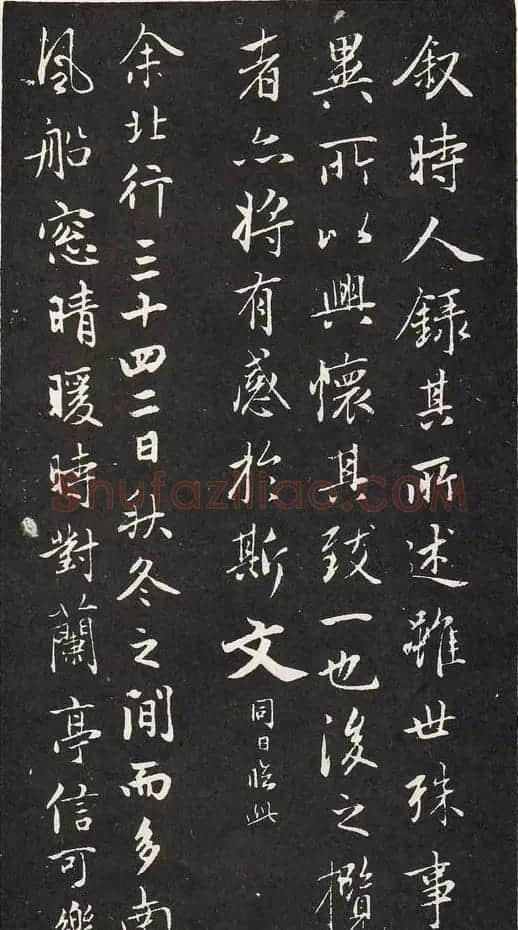 叙時人錄其所述雖世殊事
異所以興懷其致一也後之攬
者亦將有感於斯文
同日臨此
余北行三十四二日秋冬之間而多南
風船窓晴暖時對蘭亭信可樂
Shufaziliao.COM